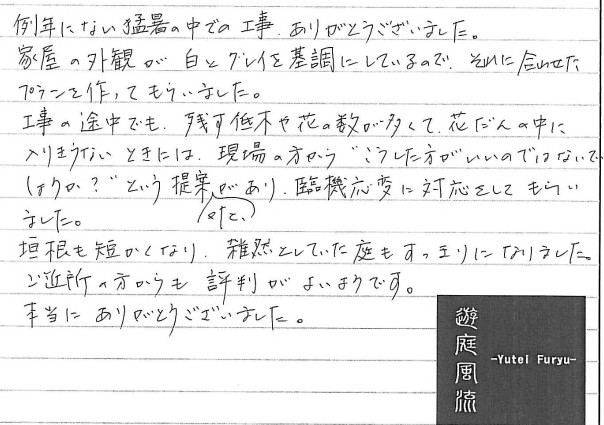 例年にない猛暑の中での工事、ありがとうございました。
家屋の外観が白とグレイを基調にしているので、それに合わせた
プランを作ってもらいました。
工事の途中でも、残す低木や花の数が多くて、花だんの中に
入りきらないときには、現場の方から“こうした方がいいのではないで
しょうか？”という提案があり、臨機応変に対応をしてもらい
ました。
垣根も短かくなり、雑然としていた庭もすっきりになりました。
ご近所の方からも評判がよいようです。
本当にありがとうございました。
遊庭風流
-Yutei Furyu-